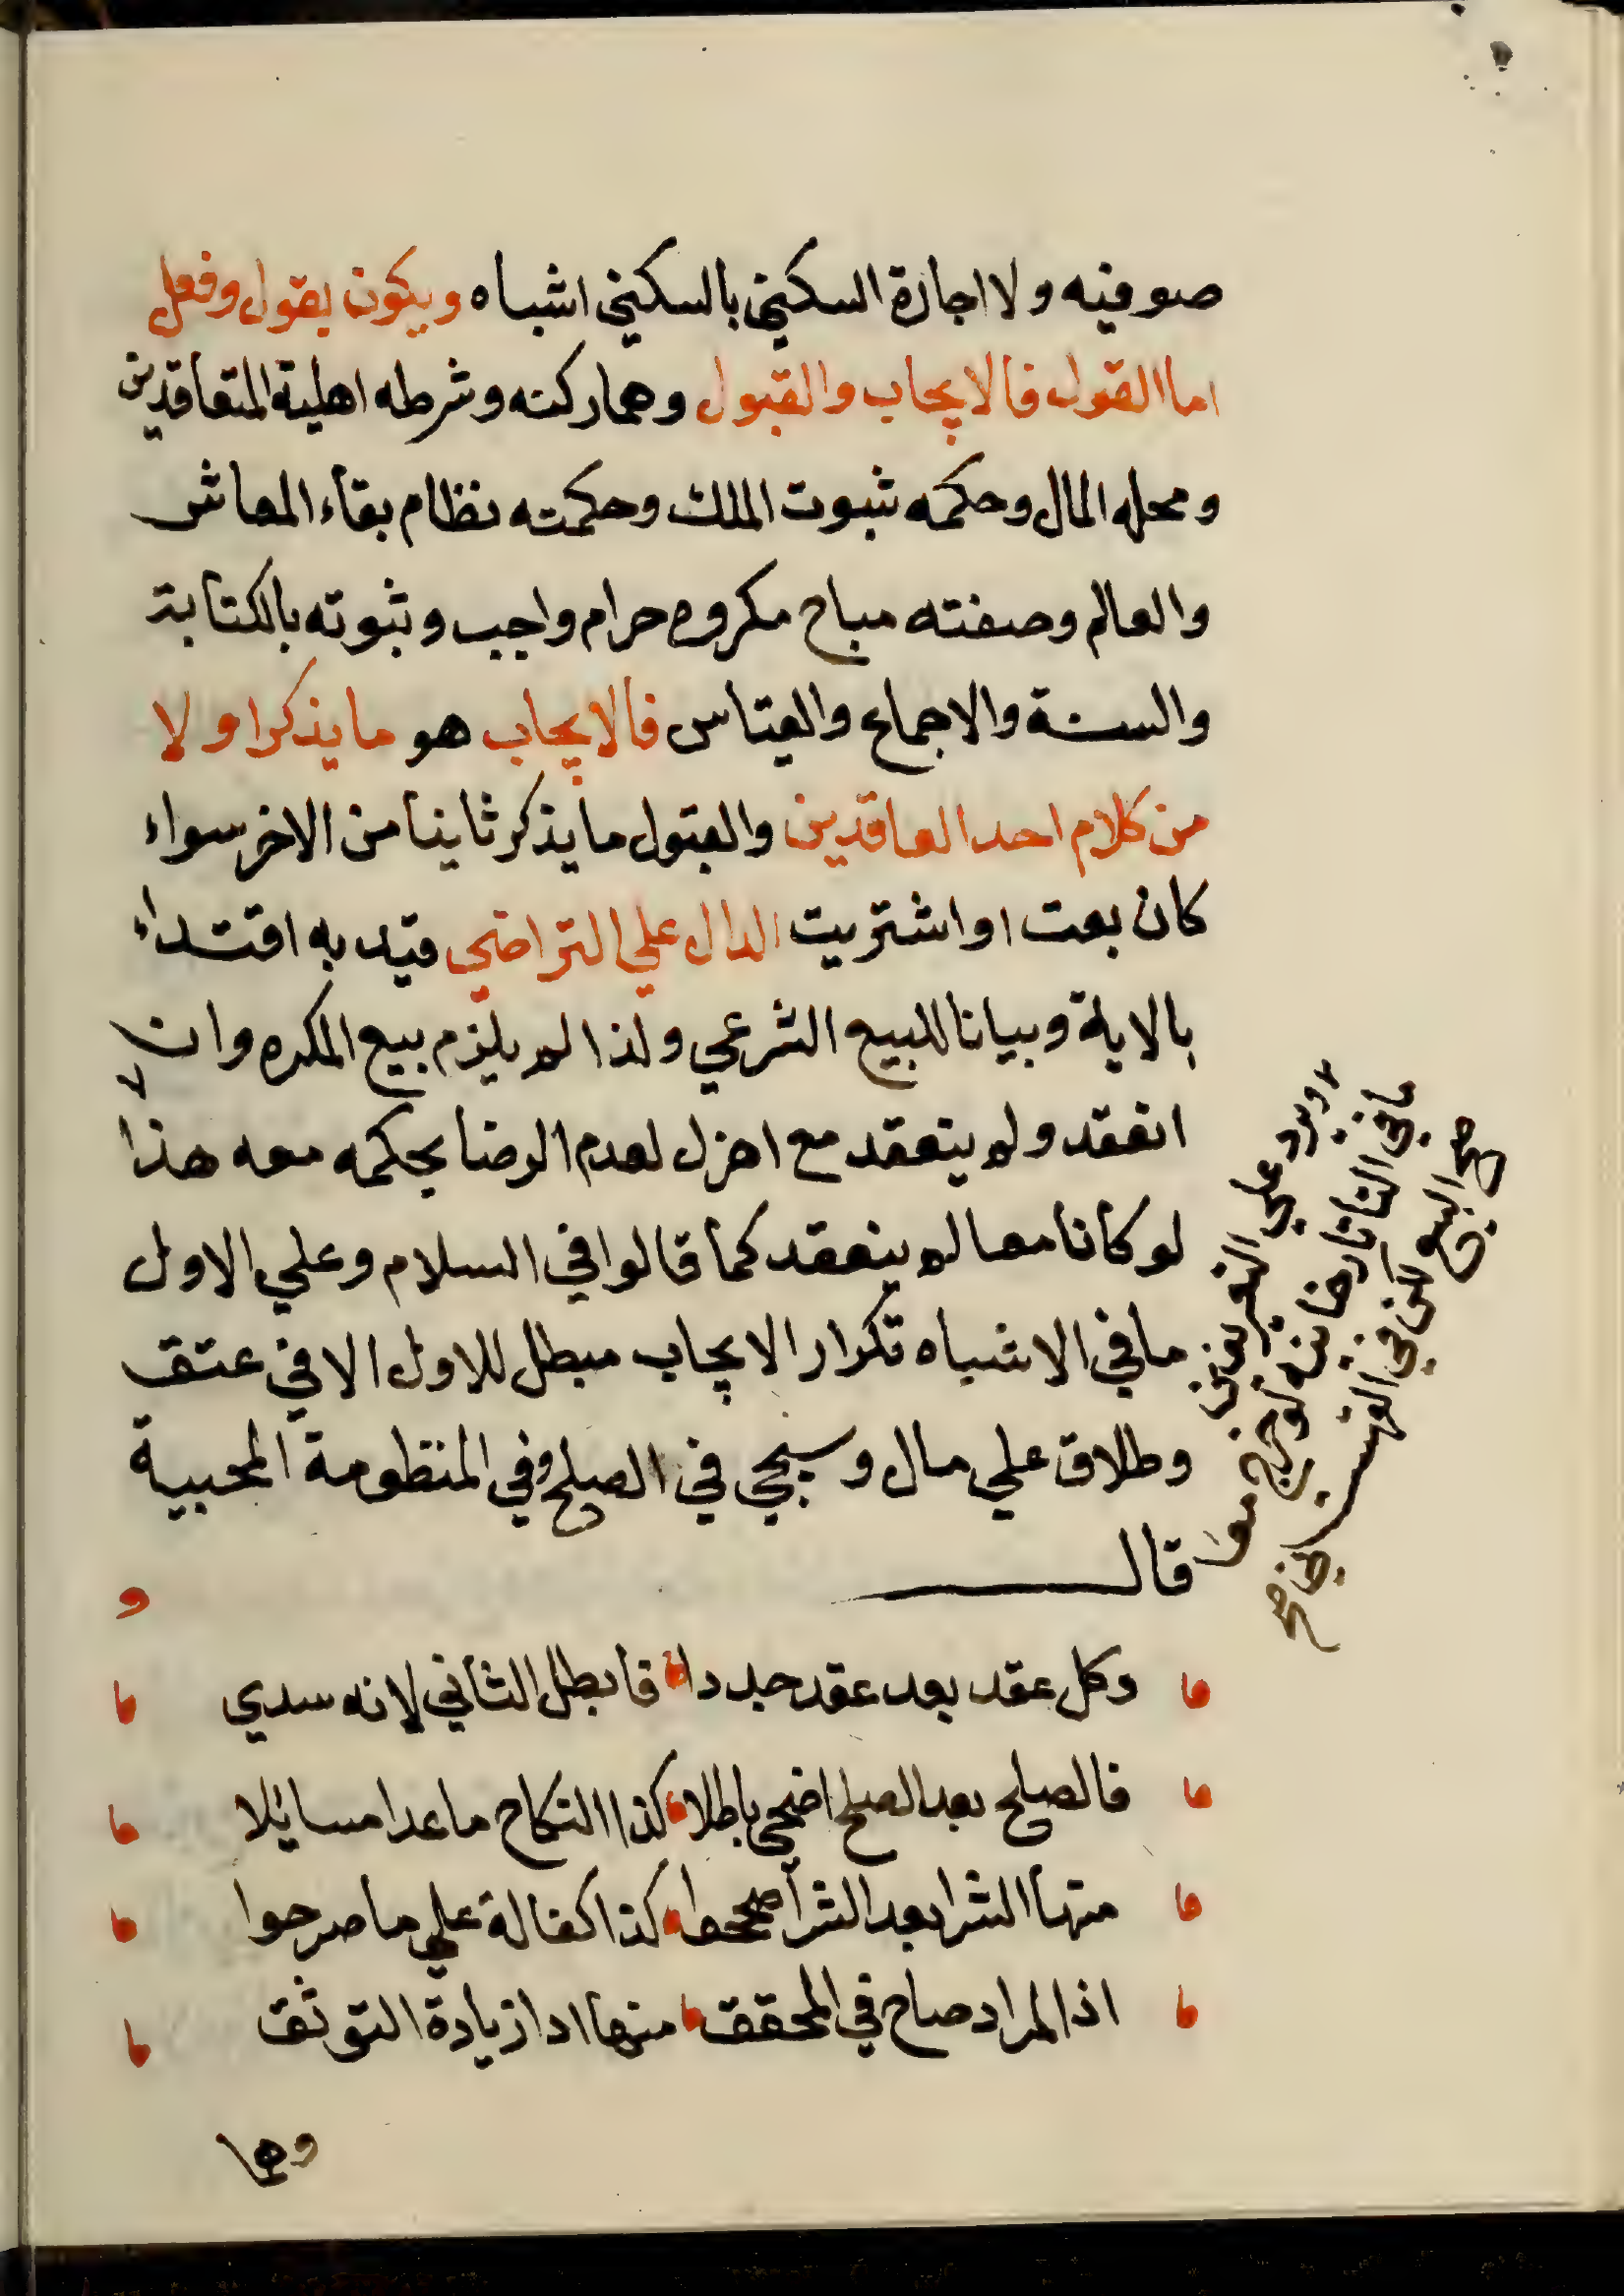 صوفيه ولا اجارة السكني بالسكني اشباه ويكون بقول وفعل
اما القول فالايجاب والقبول وهما ركنه وشرطه اهلية المتعاقدين
ومحله المال وحكمه ثبوت الملك وحكمته نظام بقاء المعاش
والعالم وصفته مباح مكروه حرام واجب وثبوته بالكتابة
والسنة والاجماع والقياس فالايجاب هو ما يذكر اولا
من كلام احد العاقدين والقبول ما يذكر ثانيا من الاخر سواء
كان بعت او اشتريت الدال علي التراضي قيد به اقتداء
بالاية وبيانا للبيع الشرعي ولذا لم يلزم بيع المكره وان
انعقد ولم ينعقد مع اهزل لعدم الرضا بحكمه معه هذا
لو كانا معا لم ينعقد كما قالوا في السلام وعلي الاول
ما في الاشباه تكرار الايجاب مبطل للاول الا في عتق
وطلاق علي مال وسيجي في الصلح وفي المنظومة المحبية
قال
وكل عقد بعد عقد جددا فابطل الثاني لانه سدي
فالصلح بعد الصلح اضحي باطلا كذا النكاح ما عدا مسائلا
منها الشرا بعد الشرا صححوا كذا كفالة علي ما صرحوا
اذ المراد صاح في المحقق منها اذا زيادة التوثق
وهما
ويرد علي التعريفين
ما في التاتارخانيه لو خرج معا
صح البيع لكن في القهستاني صح